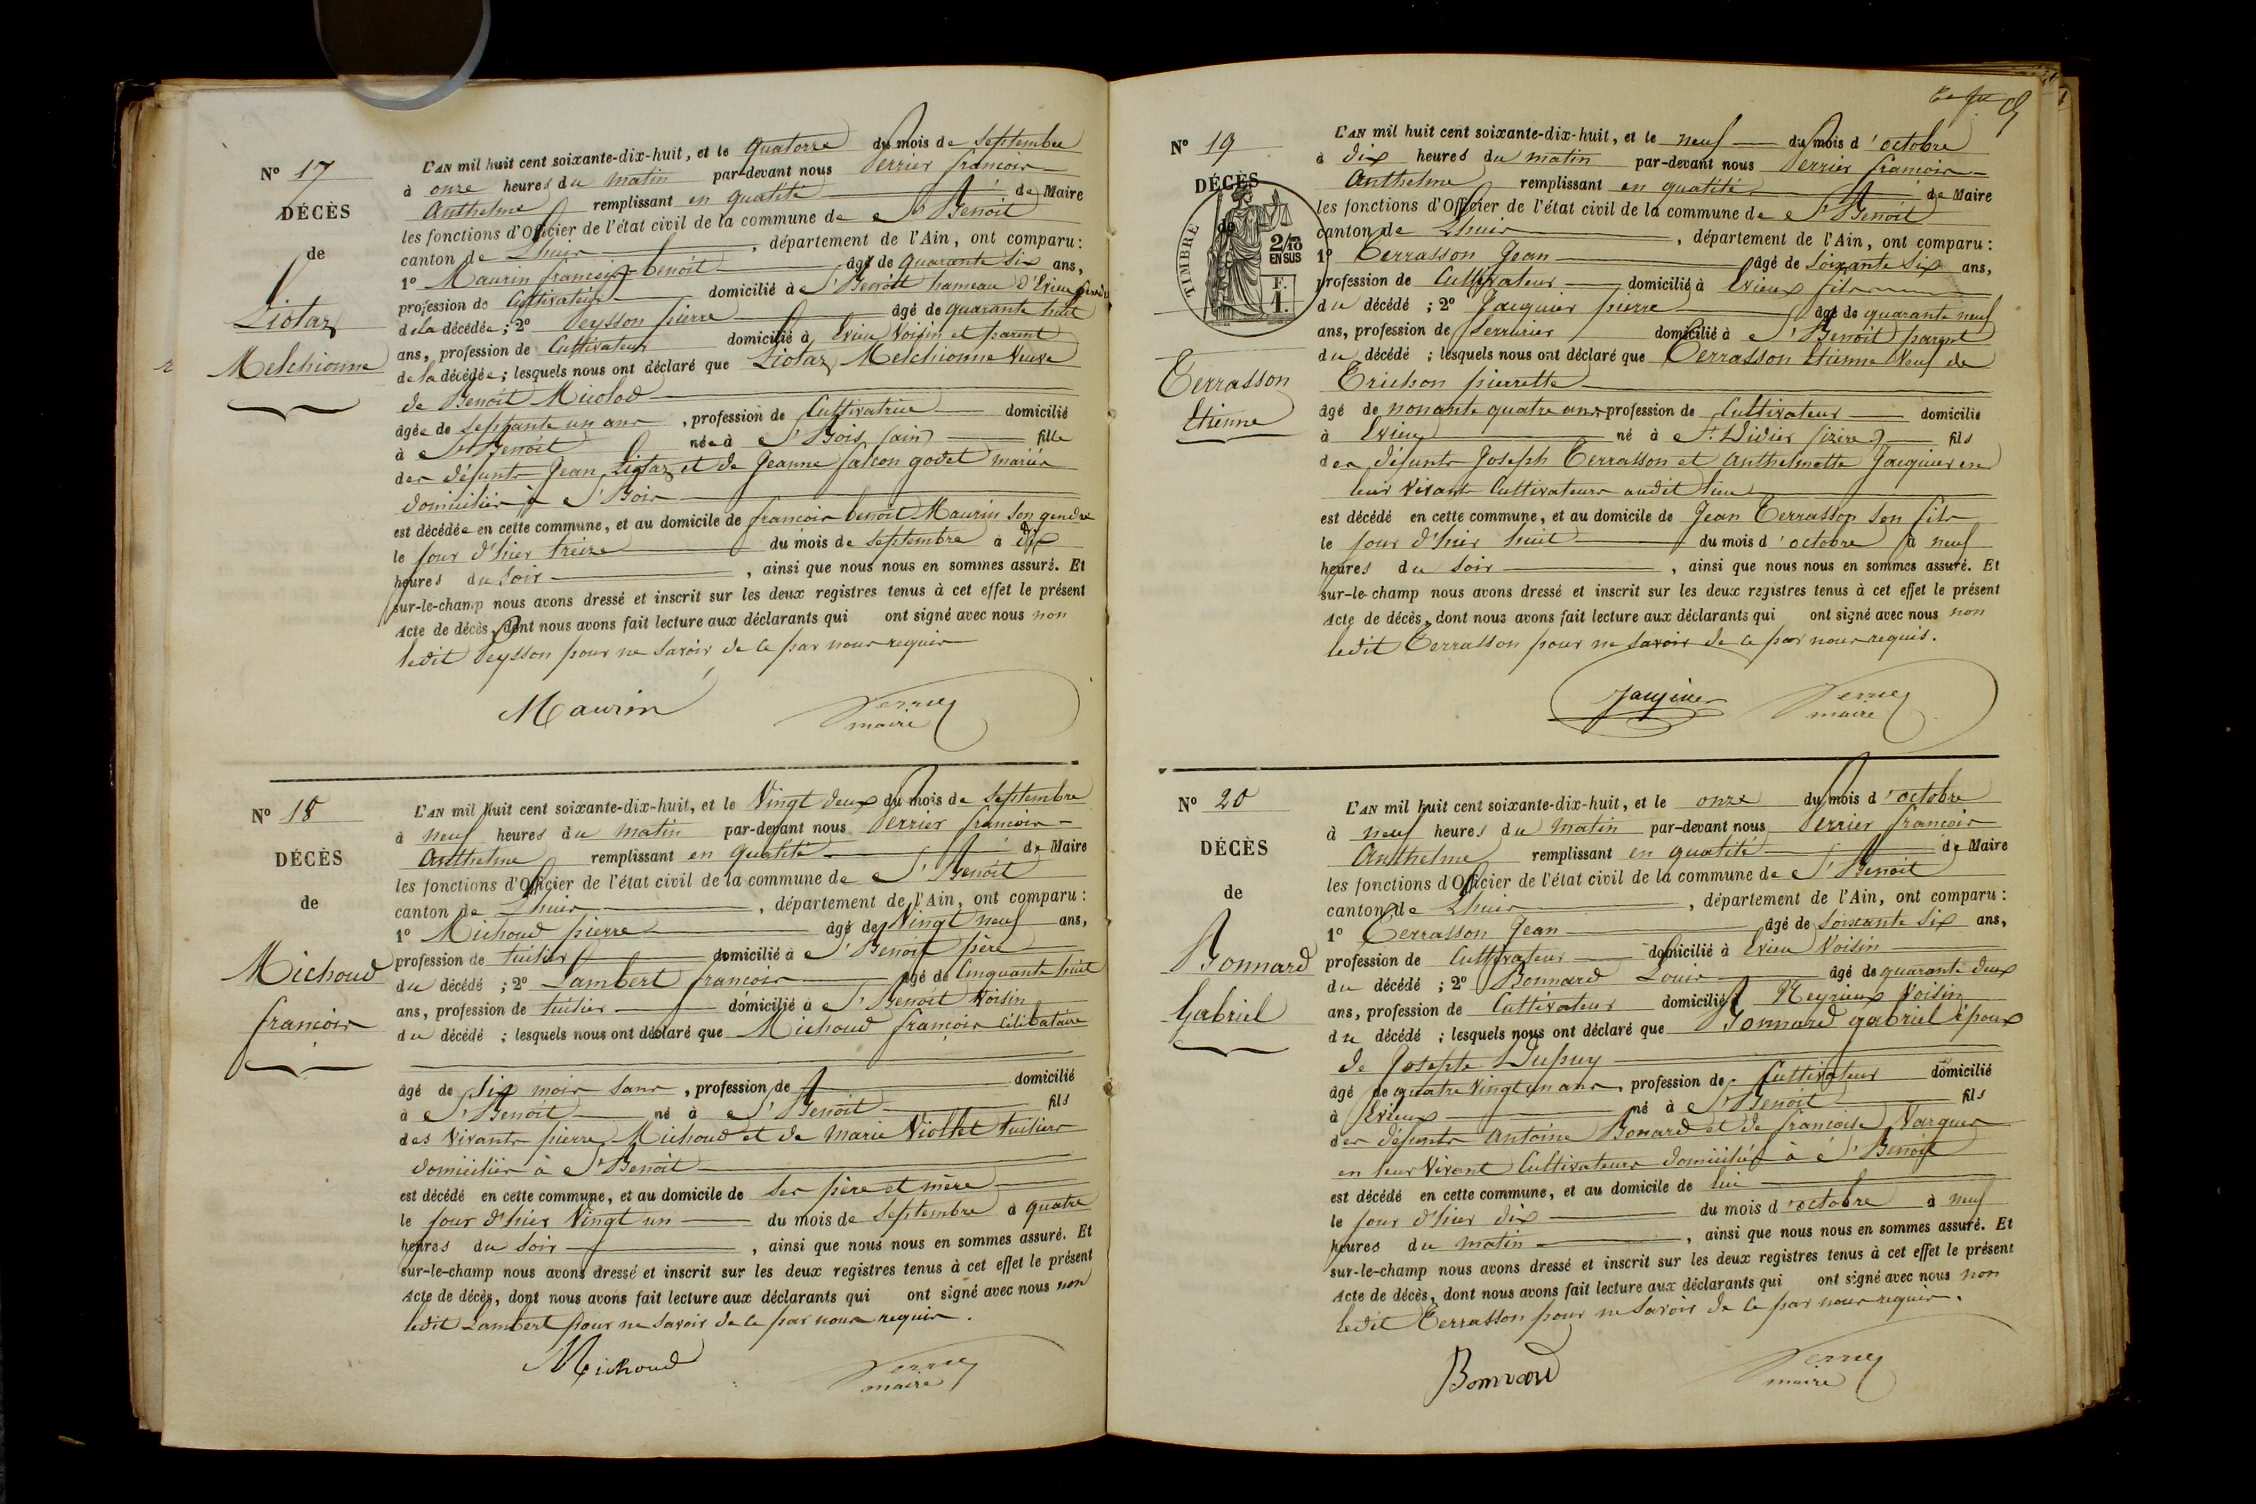 N° 17
DÉCÈS
de
Liotaz
Melchionne
L'AN mil huit cent soixante-dix-huit, et le quatorze du mois de septembre
à onze heures du matin par-devant nous Perrier françois
Anthelme remplissant en qualité de Maire
les fonctions d'Officier de l'état civil de la commune de St Benoît
canton de Lhuis, département de l'Ain, ont comparu :
1° Maurin françois benoît âgé de quarante six ans,
profession de Cultivateur domicilié à St Benoît hameau d'Evieu gendre
de la décédée ; 2° Peysson pierre âgé de quarante huit
ans, profession de Cultivateur domicilié à Evieu Voisin et parent
de la décédée ; lesquels nous ont déclaré que Liotaz Melchionne Veuve
de Benoît Micolod
âgée de septante un ans, profession de Cultivatrice domicilié
à St Benoît née à St Bois (ain) fille
des défunts Jean Liotaz et de Jeanne falcon godet mariés
domiciliés à St Bois
est décédée en cette commune, et au domicile de françois benoît Maurin son gendre
le jour d'hier treize du mois de septembre à dix
heures du soir, ainsi que nous nous en sommes assuré. Et
sur-le-champ nous avons dressé et inscrit sur les deux registres tenus à cet effet le présent
Acte de décès, dont nous avons fait lecture aux déclarants qui ont signé avec nous non
ledit Peysson pour ne savoir de ce par nous requis
Maurin Perrier
maire
N° 18
DÉCÈS
de
Michoud
françois
L'AN mil huit cent soixante-dix-huit, et le Vingt deux du mois de septembre
à neuf heures du matin par-devant nous Perrier françois
Anthelme remplissant en qualité de Maire
les fonctions d'Officier de l'état civil de la commune de St Benoît
canton de Lhuis, département de l'Ain, ont comparu :
1° Michoud pierre âgé de Vingt neuf ans,
profession de tuilier domicilié à St Benoît père
du décédé ; 2° Lambert françois âgé de Cinquante huit
ans, profession de tuilier domicilié à St Benoît Voisin
du décédé ; lesquels nous ont déclaré que Michoud françois Célibataire
âgé de six mois sans, profession de domicilié
à St Benoît né à St Benoît fils
des Vivants pierre Michoud et de Marie Viollet tuiliers
domiciliés à St Benoît
est décédé en cette commune, et au domicile de ses père et mère
le jour d'hier Vingt un du mois de septembre à quatre
heures du soir, ainsi que nous nous en sommes assuré. Et
sur-le-champ nous avons dressé et inscrit sur les deux registres tenus à cet effet le présent
Acte de décès, dont nous avons fait lecture aux déclarants qui ont signé avec nous non
ledit Lambert pour ne savoir de ce par nous requis.
Michoud Perrier
maire
N° 19
DÉCÈS
de
TIMBRE
2/10 EN SUS
F. 1.
Terrasson
Etienne
L'AN mil huit cent soixante-dix-huit, et le neuf du mois d'octobre
à dix heures du matin par-devant nous Perrier françois
Anthelme remplissant en qualité de Maire
les fonctions d'Officier de l'état civil de la commune de St Benoît
canton de Lhuis, département de l'Ain, ont comparu :
1° Terrasson Jean âgé de soixante six ans,
profession de Cultivateur domicilié à Evieux fils
du décédé ; 2° Jacquier pierre âgé de quarante neuf
ans, profession de Serrurier domicilié à St Benoît parent
du décédé ; lesquels nous ont déclaré que Terrasson Etienne Veuf de
Trichon pierrette
âgé de nonante quatre ans profession de Cultivateur domicilié
à Evieux né à St Didier (izère) fils
des défunts Joseph Terrasson et Anthelmette Jacquier en
leur vivant Cultivateurs audit lieu
est décédé en cette commune, et au domicile de Jean Terrasson son fils
le jour d'hier huit du mois d'octobre à neuf
heures du soir, ainsi que nous nous en sommes assuré. Et
sur-le-champ nous avons dressé et inscrit sur les deux registres tenus à cet effet le présent
Acte de décès, dont nous avons fait lecture aux déclarants qui ont signé avec nous non
ledit Terrasson pour ne savoir de ce par nous requis.
Jacquier Perrier
maire
N° 20
DÉCÈS
de
Bonnard
Gabriel
L'AN mil huit cent soixante-dix-huit, et le onze du mois d'octobre
à neuf heures du matin par-devant nous Perrier françois
Anthelme remplissant en qualité de Maire
les fonctions d'Officier de l'état civil de la commune de St Benoît
canton de Lhuis, département de l'Ain, ont comparu :
1° Terrasson Jean âgé de soixante six ans,
profession de Cultivateur domicilié à Evieu Voisin
du décédé ; 2° Bonnard Louis âgé de quarante deux
ans, profession de Cultivateur domicilié à Meyrieux Voisin
du décédé ; lesquels nous ont déclaré que Bonnard gabriel époux
de Josephe Dupuy
âgé de quatre Vingt un ans, profession de Cultivateur domicilié
à Evieux né à St Benoît fils
des défunts Antoine Bonard et de françoise Varguer
en leur Vivant Cultivateurs domiciliés à St Benoît
est décédé en cette commune, et au domicile de lui
le jour d'hier dix du mois d'octobre à neuf
heures du matin, ainsi que nous nous en sommes assuré. Et
sur-le-champ nous avons dressé et inscrit sur les deux registres tenus à cet effet le présent
Acte de décès, dont nous avons fait lecture aux déclarants qui ont signé avec nous non
ledit Terrasson pour ne savoir de ce par nous requis.
Bonnard Perrier
maire